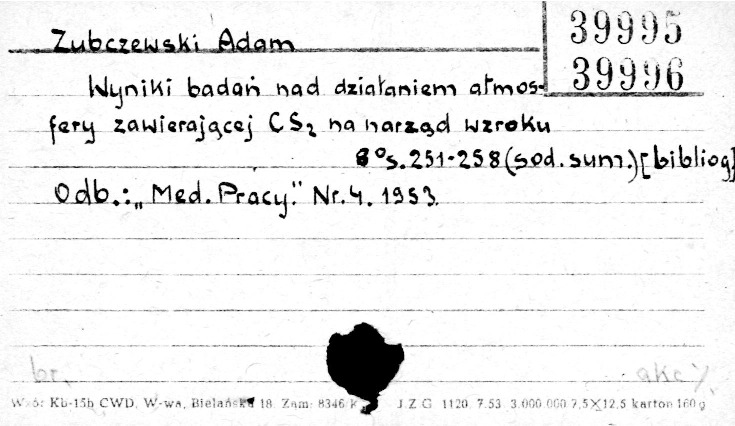 39995
39996
Zubczewski Adam
Wyniki badań nad działaniem atmos-
fery zawierającej CS₂ na narząd wzroku
8° s. 251-258 (sod. sum.) [bibliog]
Odb.: „Med. Pracy." Nr. 4. 1953.
br. akc
Wzór Kb-15b CWD, W-wa, Bielańska 18. Zam. 8346 J.Z.G. 1120. 7.53. 3.000.000 7,5×12,5 karton 160 g